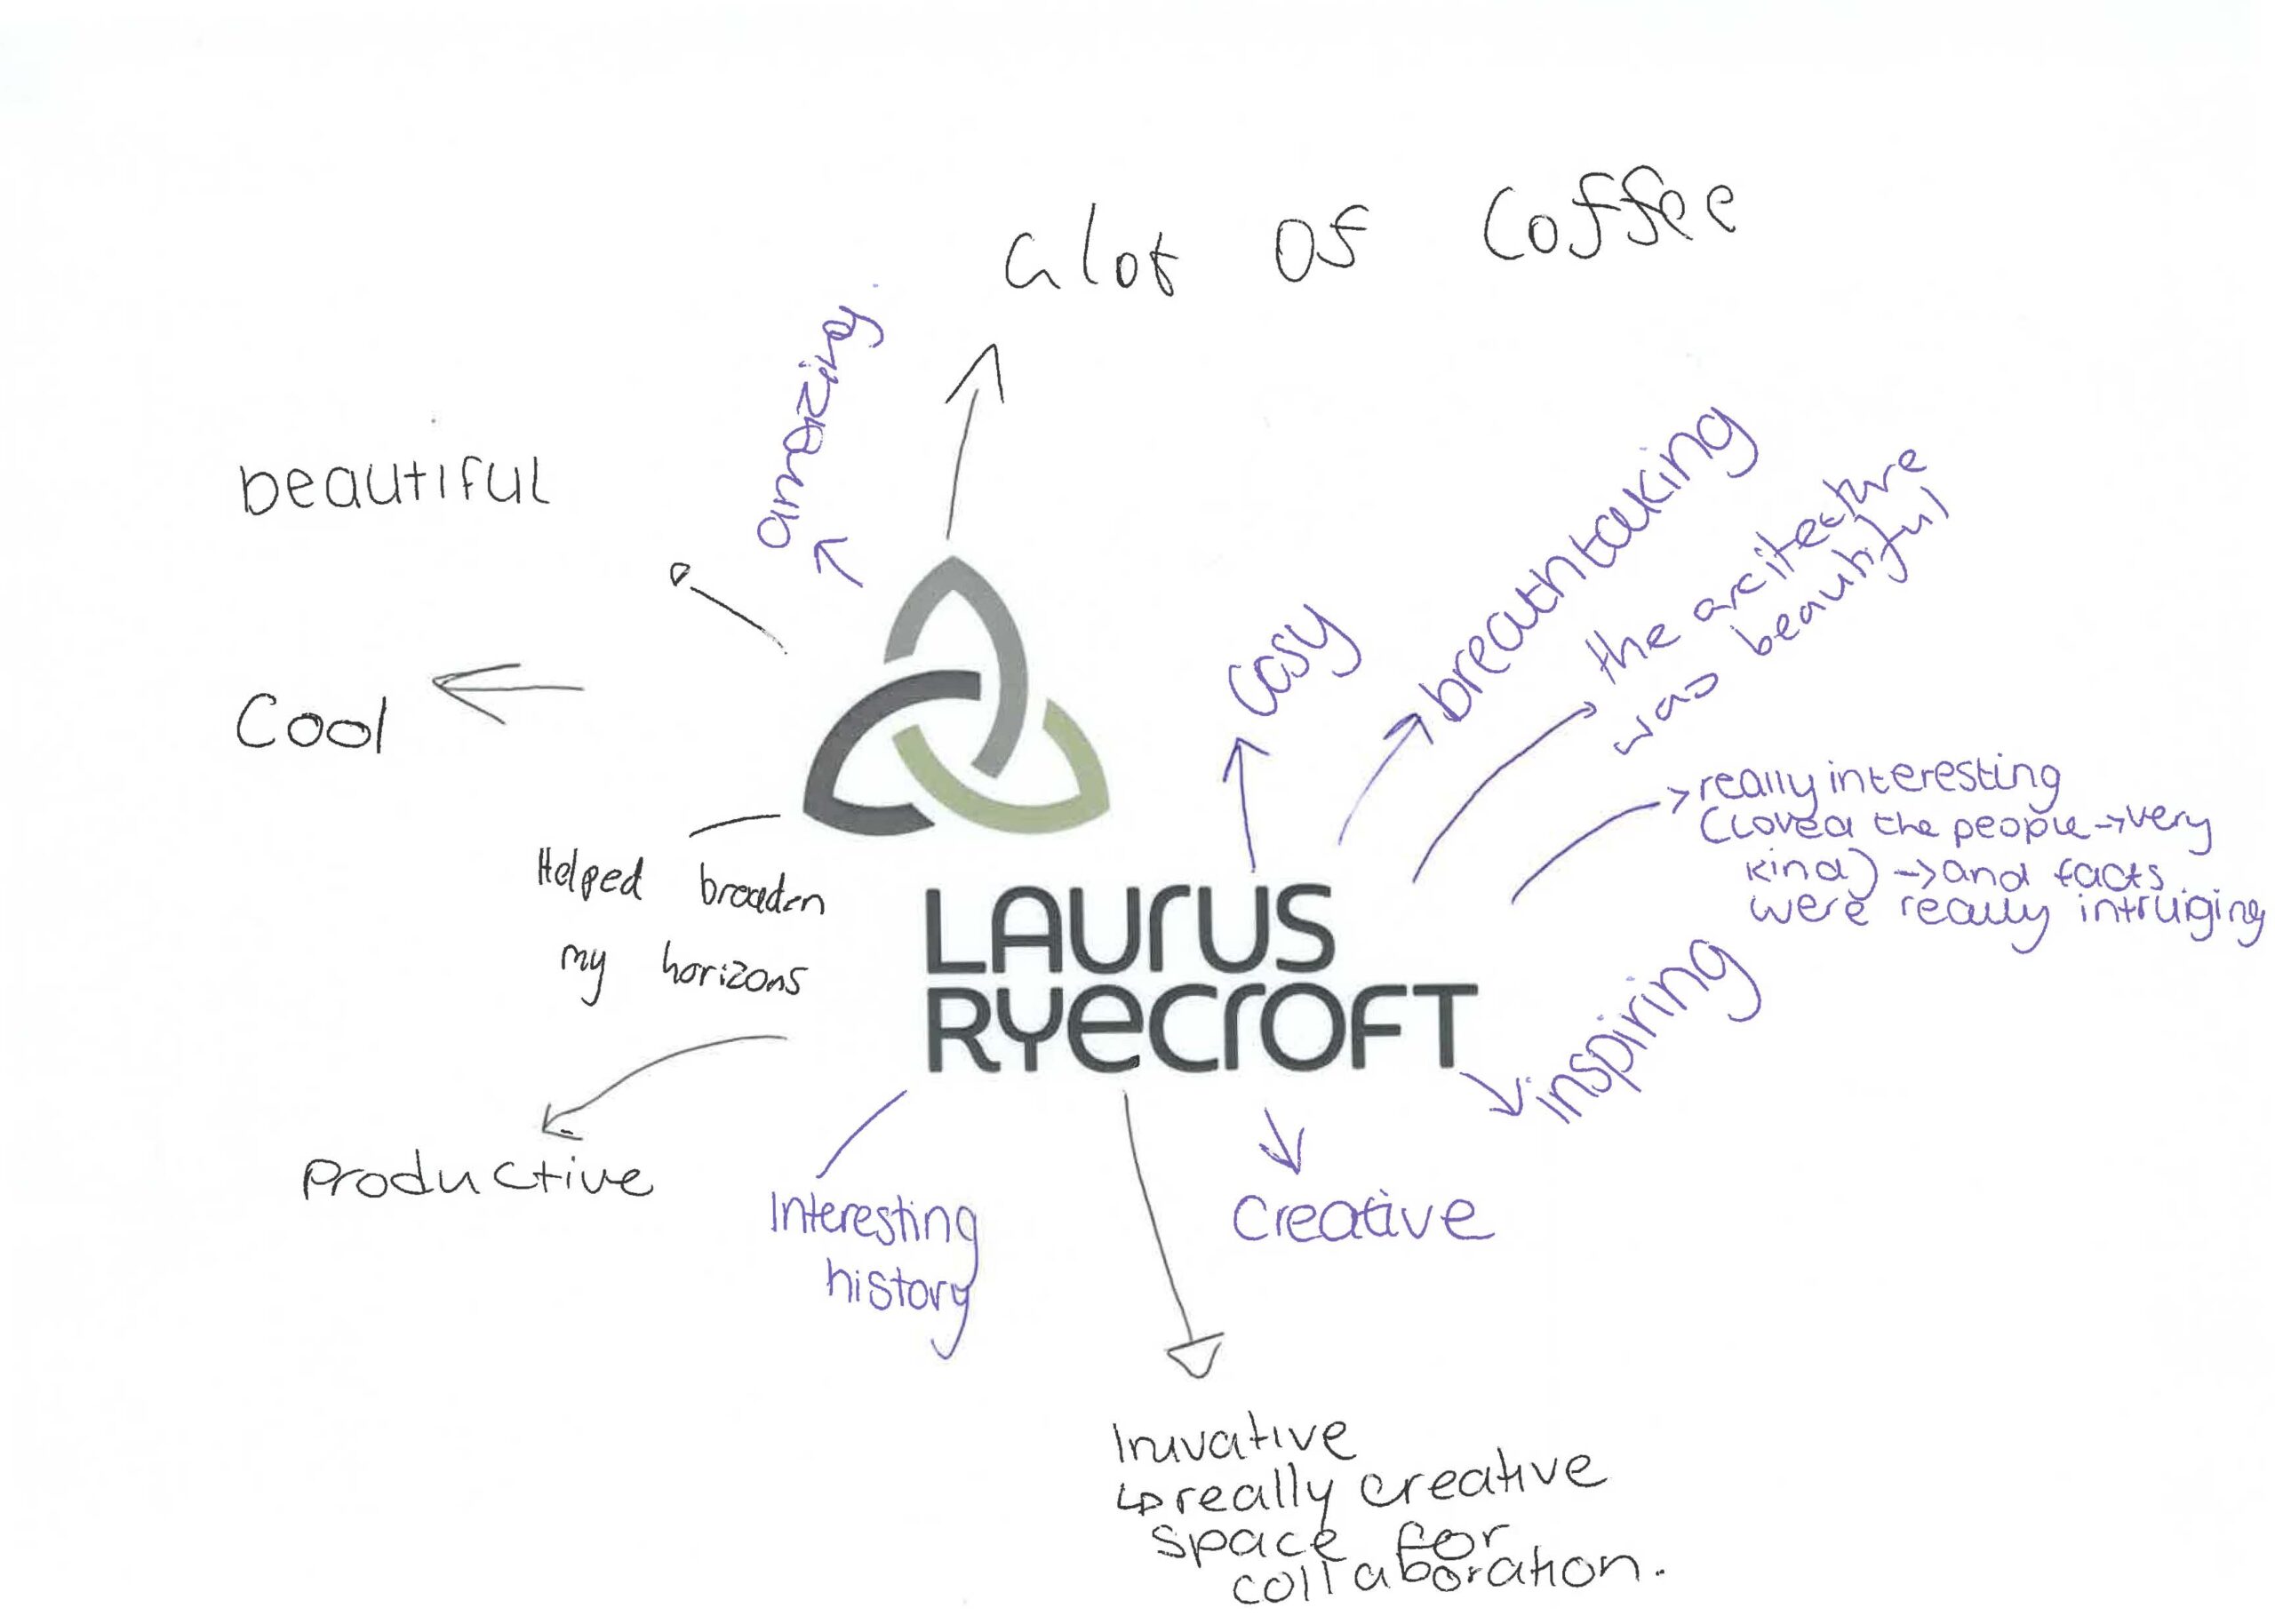 alot of Coffee
amazing.
beautiful
Cool
Helped broaden
my horizons
Productive
Interesting
history
Inuvative
↳really creative
space for
collaboration.
Creative
inspiring
→really interesting
(loved the people → very
kind) → and facts
were really intruiging
the arcitecture
was beautiful
breathtaking
cosy
LAURUS
RYECROFT